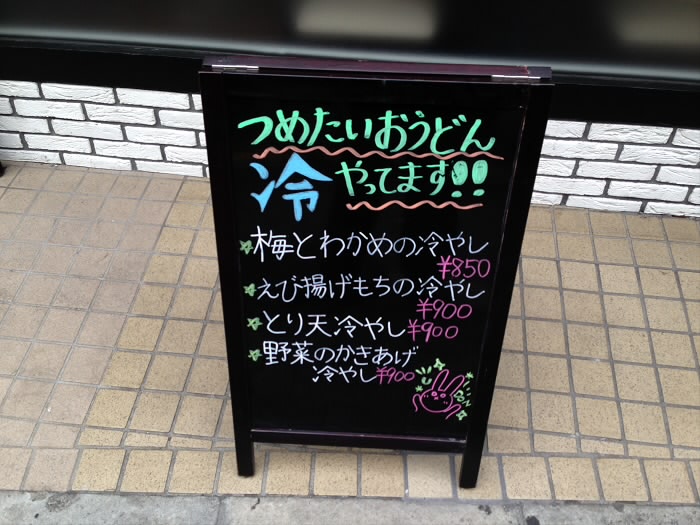 つめたいおうどん
冷やってます!!
梅とわかめの冷やし
¥850
えび揚げもちの冷やし
¥900
とり天冷やし ¥900
野菜のかきあげ
冷やし ¥900